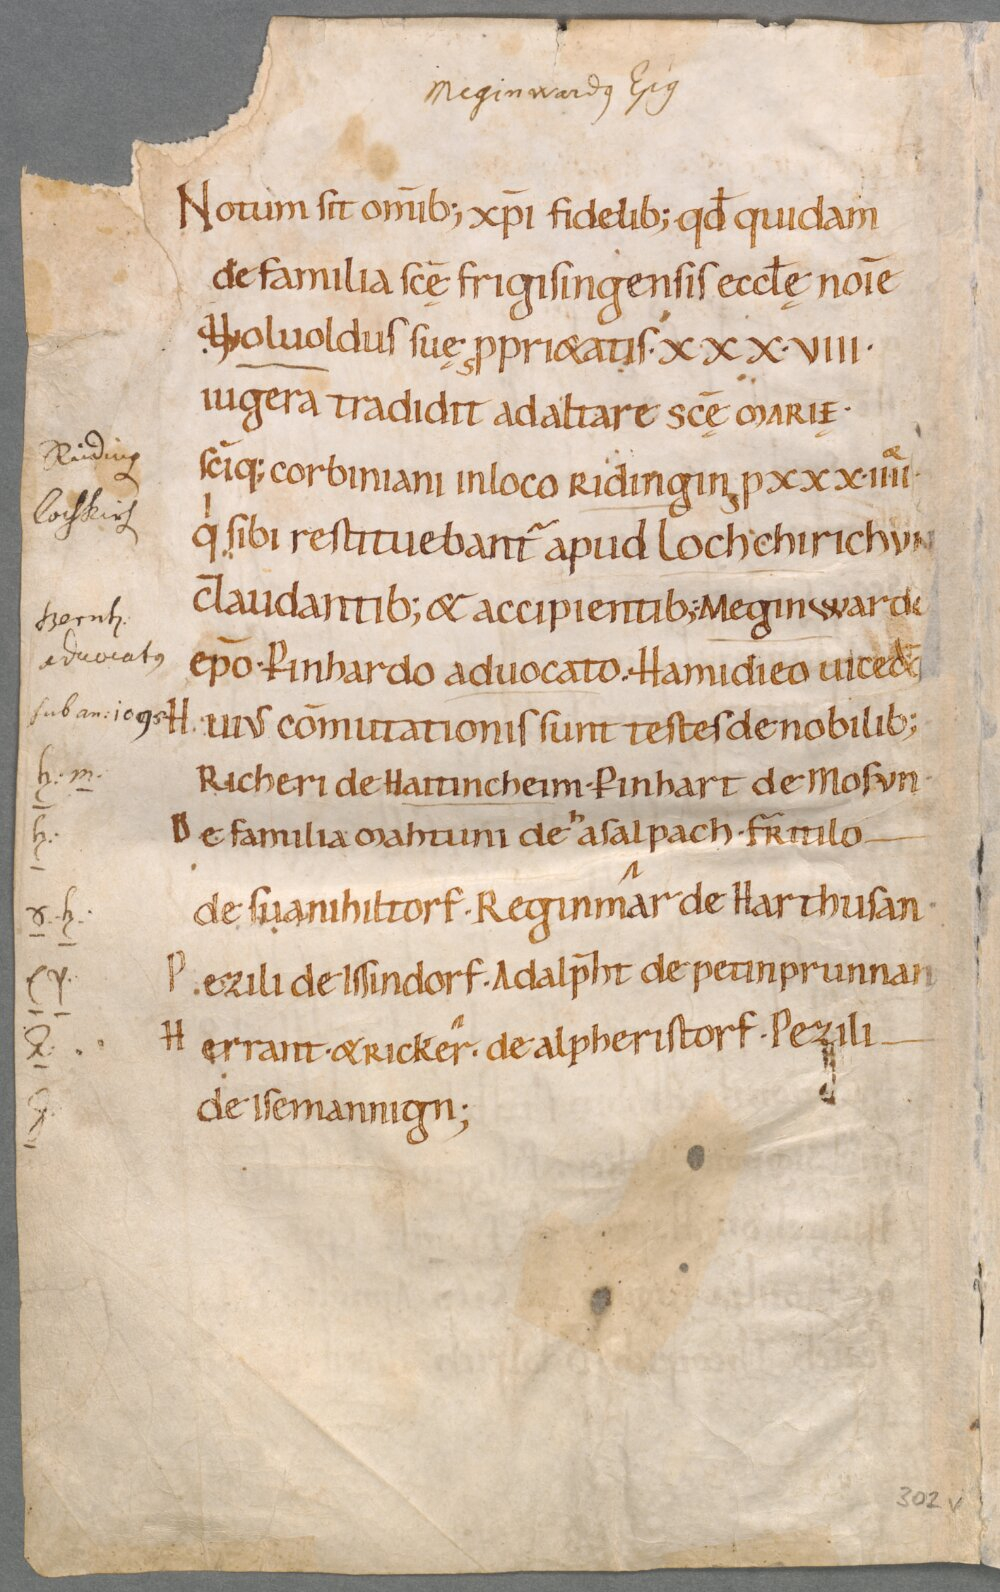 Meginwardꝰ Epꝰ
Notum sit om̅ib; xp̅i fidelib; qd̅ quidam
de familia sc̅ę frigisingensis eccl̅ę noi̅e
Vvoluoldus suę ꝓpri&atis· XXX·VIII·
iugera tradidit ad altare sc̅ę MARIĘ·
sc̅iq; corbiniani in loco Ridingin ꝓ XXX·IIII·
q sibi restituebant᷑ apud Lochchirichvn
claudantib; & accipientib; Meginwarde
ep̅o· Pinhardo aduocato· Hamidieo uiced̅
Huius com̅utationis sunt testes de nobilib;
Richeri de Hattincheim· Pinhart de Mosvn·
De familia Mahtuni de hasalpach· fritilo
de suanihiltorf· Reginmar de Harthusan·
Pezili de Issindorf· Adalp̅ht de petinprunnan
Herrant· & Ricker· de alpheristorf· Pezili
de Isemannign;
Riding
Lochkirch
bernh.
advocatꝰ
sub an: 1095
h· m·
h·
r· h·
302 v